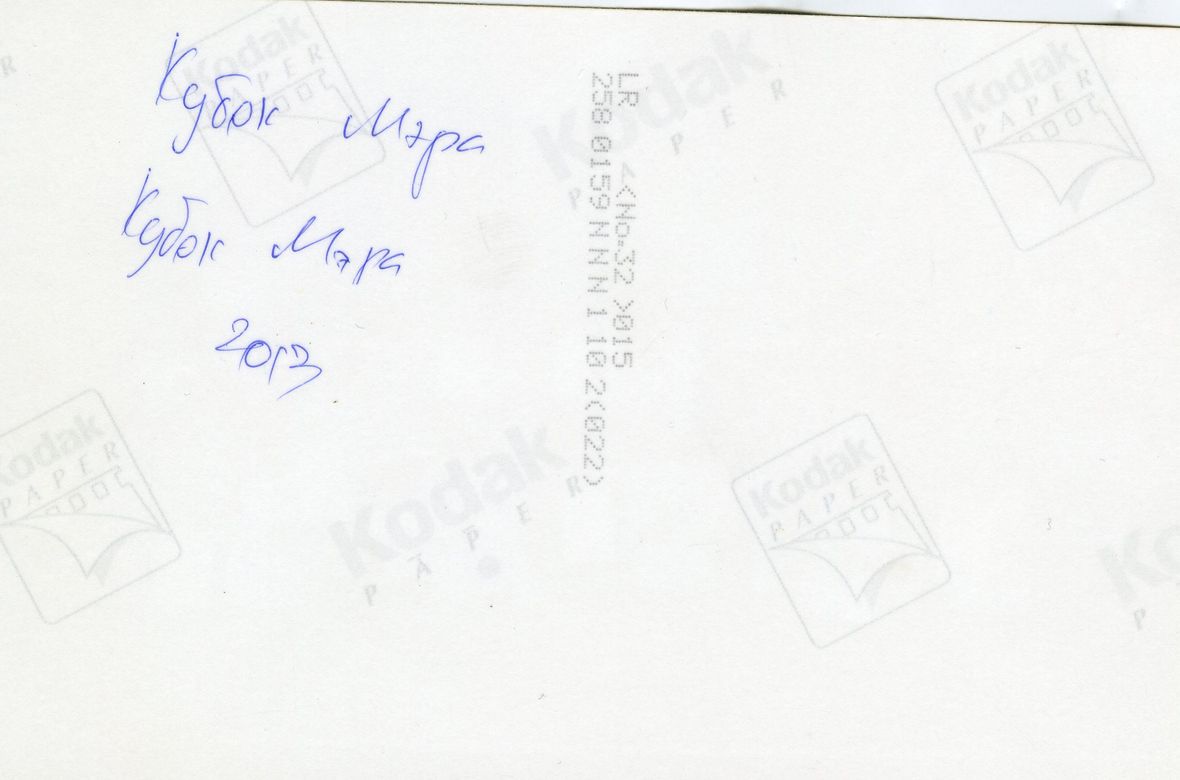 Кубок Мэра
Кубок Мэра
2013
LR <No.32 >015
258 0159 N N N 1 10 2<022>
Kodak
PAPER
Kodak
PAPER
Kodak
PAPER
Kodak
PAPER
Kodak
PAPER
Kodak
PAPER